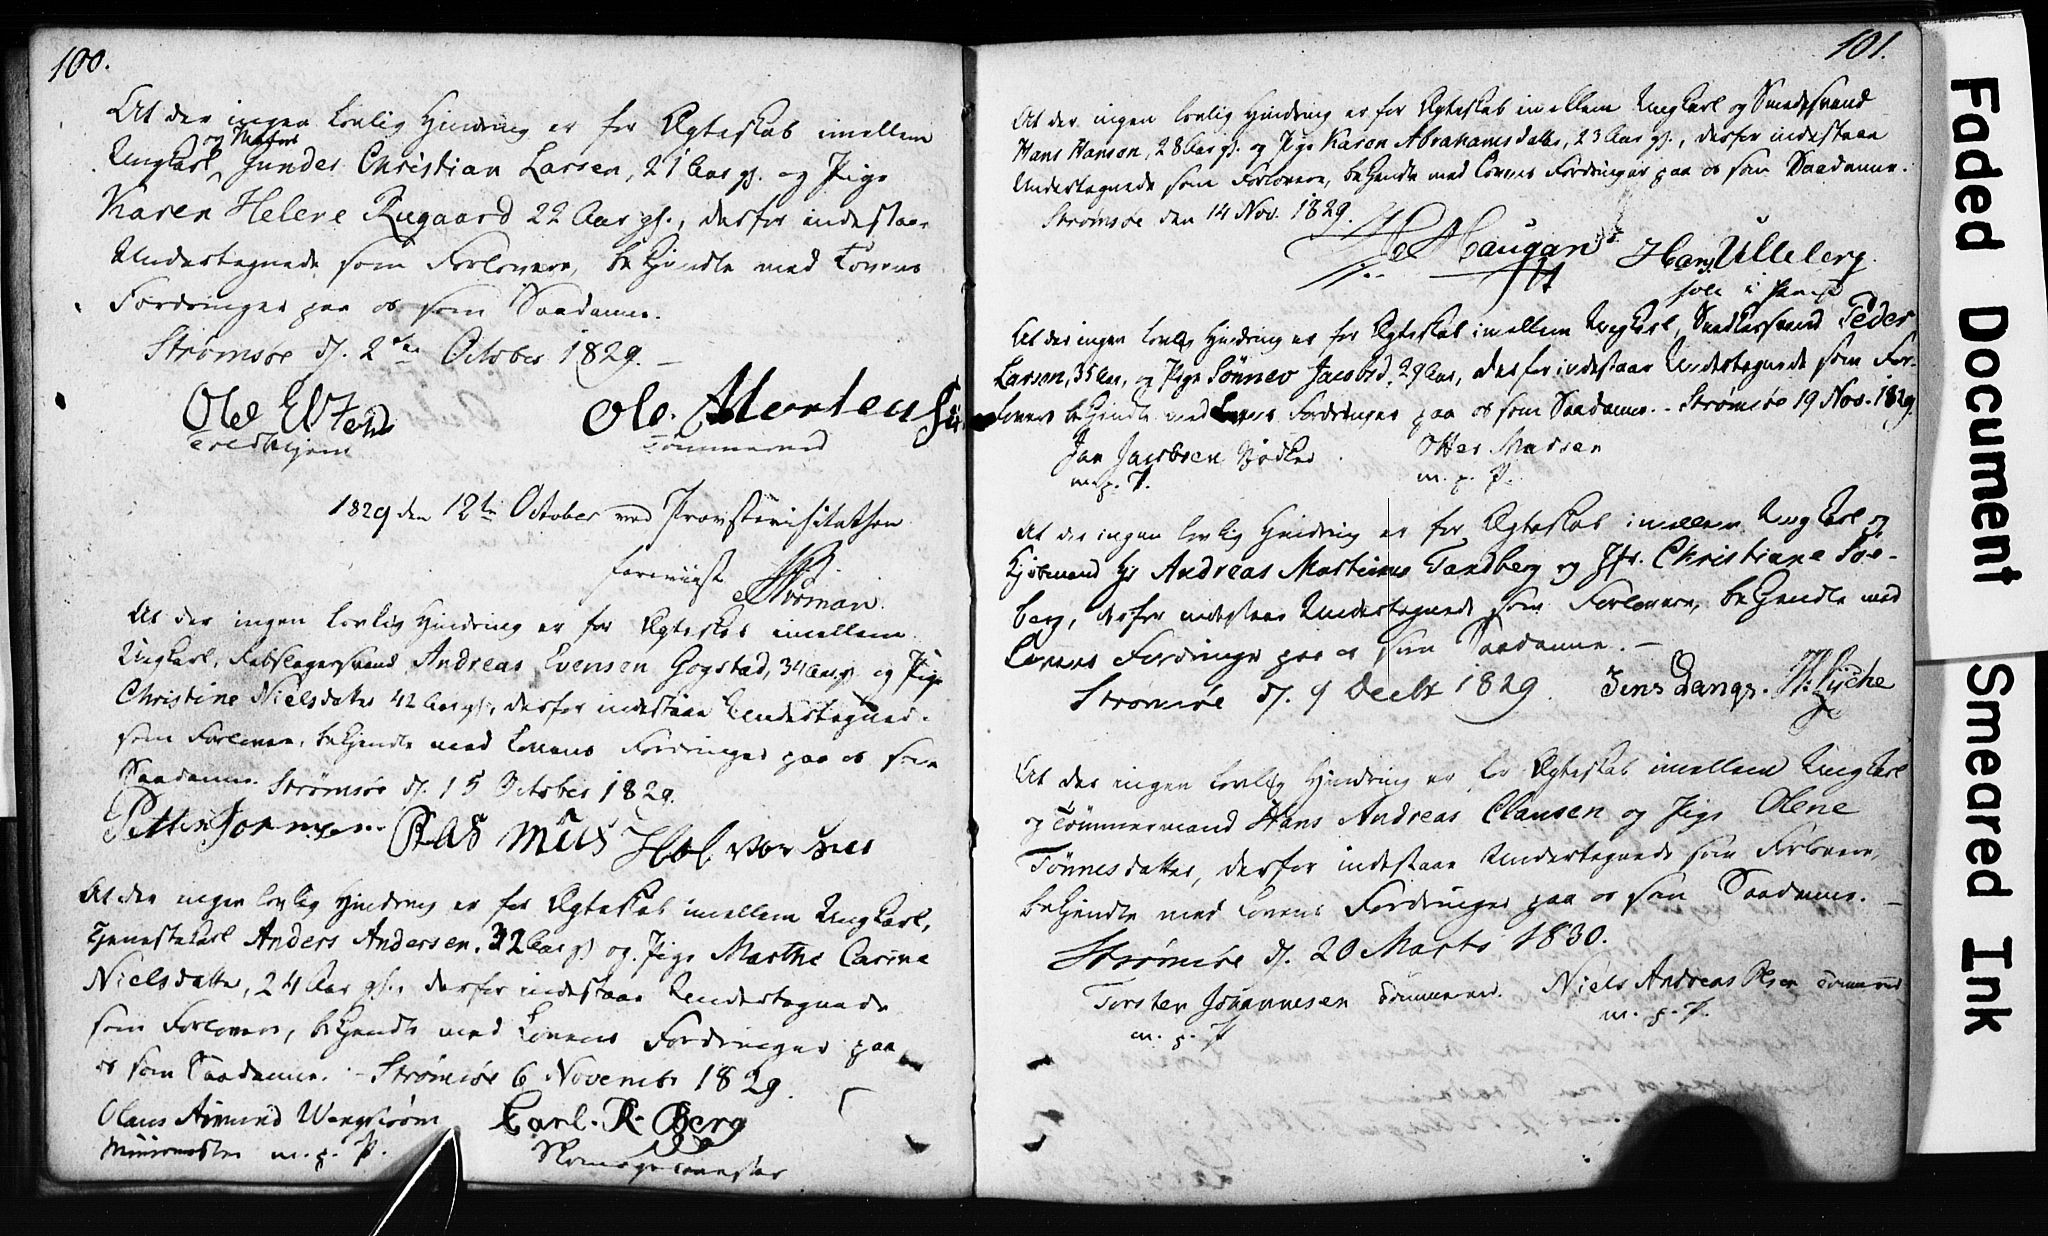 100.
At der ingen lovlig Hindring er for Ægteskab imellem
og Matros
Ungkarl, Gunder Christian Larsen, 21 Aar gl. og Pige
Karen Helene Rugaard 22 Aar gl., derfor indestaae
Undertegnede som Forlovere, bekjendte med Lovens
Fordringer paa os som Saadanne.
Strømsøe d. 2den October 1829.
Ole Ole Mortensen
Tømmermd
1829 den 12te October ved Provstevisitatsen
foreviist
Strøman.
At der ingen lovlig Hindring er for Ægteskab imellem
Ungkarl, Rebslagersvend Andreas Evensen Gogstad, 34 Aar gl. og Pige
Christine Nielsdatter 42 Aar gl., derfor indestaae Undertegnede
som Forlovere, bekjendte med Lovens Fordringer paa os som
Saadanne. Strømsøe d. 15 October 1829.
Petter
At der ingen lovlig Hindring er for Ægteskab imellem Ungkarl,
Tjenestekarl Anders Andersen, 32 Aar gl. og Pige Marthe Carine
Nielsdatter, 24 Aar gl., derfor indestaae Undertegnede
som Forlovere, bekjendte med Lovens Fordringer paa
os som Saadanne. - Strømsøe 6 Novembr 1829.
Olaus Amund Wengstrøm Carl. R. Berg
Muurmester m. p. P. Skomagermester
101.
At der ingen lovlig Hindring er for Ægteskab imellem Ungkarl og Smedesvend
Hans Hansen, 28 Aar gl. og Pige Karen Abrahamsdatter, 23 Aar gl., derfor indestaae
Undertegnede som Forlovere, bekjendte med Lovens Fordringer paa os som Saadanne.
Strømsøe den 14 Nov. 1829.
Haugan Hans Ulleberg
At der ingen lovlig Hindring er for Ægteskab imellem Ungkarl, Snedkersvend Peder
Larsen, 35 Aar, og Pige Sønnev Jacobsd, 29 Aar, derfor indestaae Undertegnede som For-
lovere bekjendte med Lovens Fordringer paa os som Saadanne. - Strømsøe 19 Nov. 1829.
Jan Jacobsen Bødker Otter Madsen
m. p. P. m. p. P.
At der ingen lovlig Hindring er for Ægteskab imellem Ungkarl og
Kjøbmand Hr Andreas Martinus Tandberg og Jfr. Christiane Soe-
berg, derfor indestaae Undertegnede som Forlovere, bekjendte med
Lovens Fordringer paa os som Saadanne. -
Strømsøe d. 9 Decbr 1829. Jens Lange. H: Lyche
At der ingen lovlig Hindring er for Ægteskab imellem Ungkarl
og Tømmermand Hans Andreas Clausen og Pige Olene
Tønnesdatter, derfor indestaae Undertegnede som Forlovere,
bekjendte med Lovens Fordringer paa os som Saadanne. -
Strømsøe d. 20 Marts 1830.
Torsten Johannesen Tømmermd. Niels Andreas Olsen Tømmermd
m. p. P. m. p. P.
Faded Document
Smeared Ink